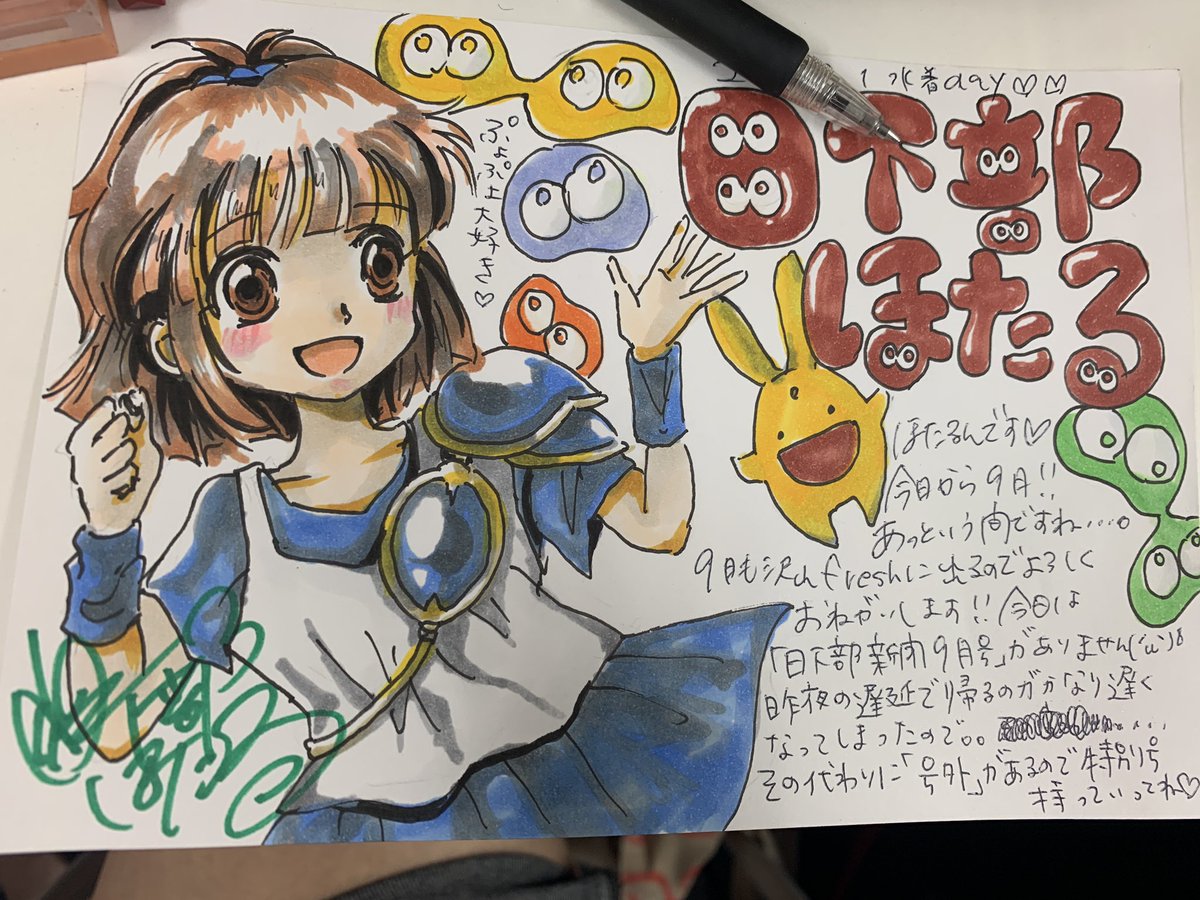 水着day♡♡
日下部
ほたる
ぷよぷよ大好き♡
ほたるんです♡
今日から9月!!
あっという間ですね.....。
9月も沢山freshに出るのでよろしく
おねがいします!!今日は
「日下部新聞9月号」がありません('ω')
昨夜の遅延で帰るのがかなり遅く
なってしまったので。。
その代わりに「号外」があるので特別号
持っていってね♡